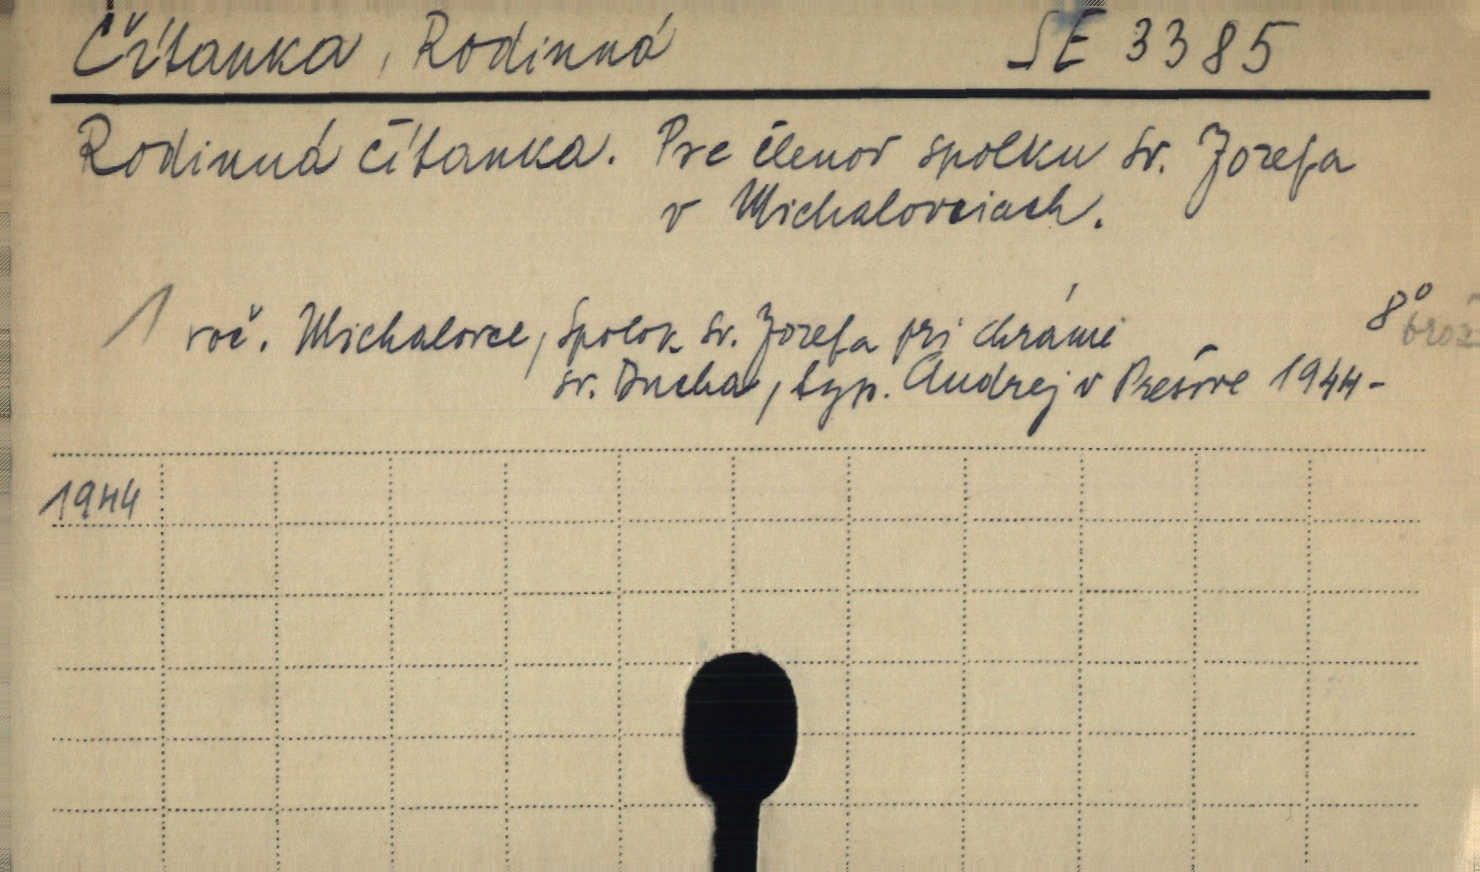 Čítanka, Rodinná SE 3385
Rodinná čítanka. Pre členov spolku sv. Jozefa
v Michalovciach.
1 roč. Michalovce, Spolok sv. Jozefa pri chráme 8°
brož
sv. Ducha, typ. Andrej v Prešove 1944-
1944